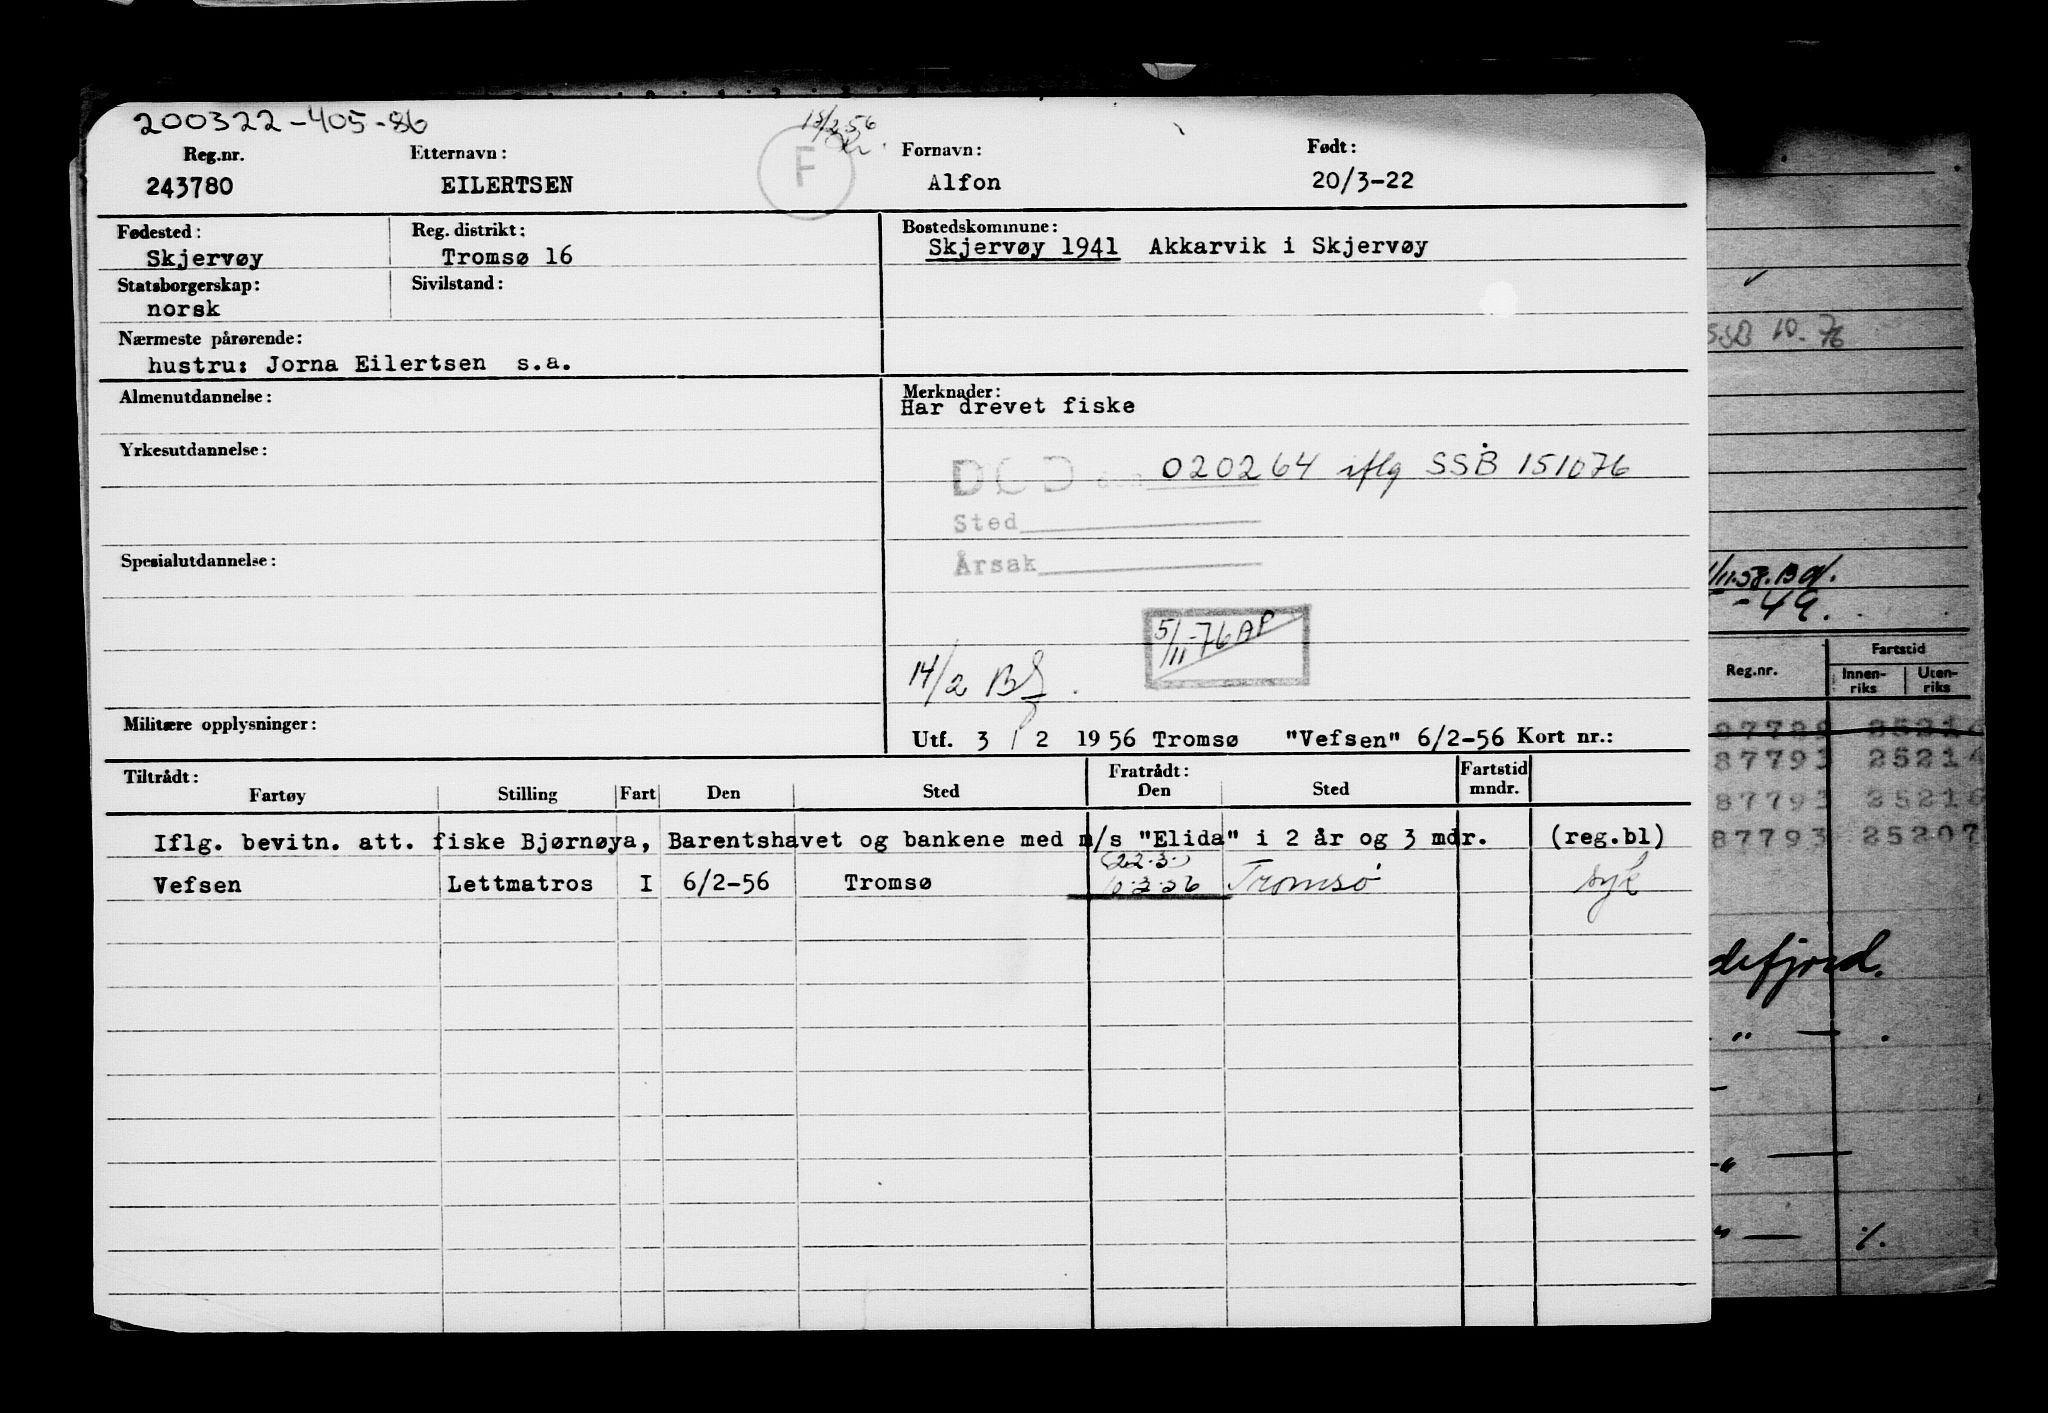 200322-405-86
Reg.nr. Etternavn: F Fornavn: Født:
243780 EILERTSEN Alfon 20/3-22
Fødested: Reg. distrikt: Bostedskommune:
Skjervøy Tromsø 16 Skjervøy 1941 Akkarvik i Skjervøy
Statsborgerskap: Sivilstand:
norsk
Nærmeste pårørende:
hustru: Jorna Eilertsen s.a.
Almenutdannelse: Merknader:
Har drevet fiske
Yrkesutdannelse:
DØD den 020264 iflg SSB 151076
Sted
Spesialutdannelse: Årsak
5/11-76 AP
14/2
Militære opplysninger:
Utf. 3 / 2 1956 Tromsø "Vefsen" 6/2-56 Kort nr.:
Tiltrådt: Fratrådt: Fartstid mndr.
Fartøy Stilling Fart Den Sted Den Sted
Iflg. bevitn. att. fiske Bjørnøya, Barentshavet og bankene med m/s "Elida" i 2 år og 3 mdr. (reg.bl)
(22.3.)
Vefsen Lettmatros I 6/2-56 Tromsø 10.3.56 Tromsø syk
SSB 10.76
-49.
Reg.nr. Fartstid
Innen-riks Uten-riks
87793 25214
87793 25216
87793 25207
defjord.